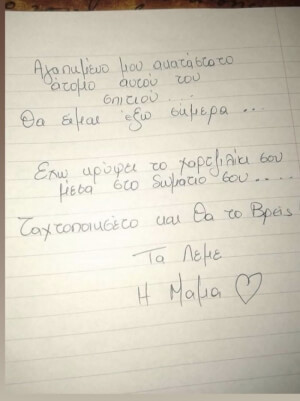 Αγαπημένο μου ακατάστατο
άτομο αυτού του
σπιτιού ....
Θα είμαι έξω σήμερα ...
Έχω κρύψει το χαρτζιλίκι σου
μέσα στο δωμάτιο σου ....
Ταχτοποιησέτο και θα το βρείς
Τα Λέμε
Η Μαμα ♡